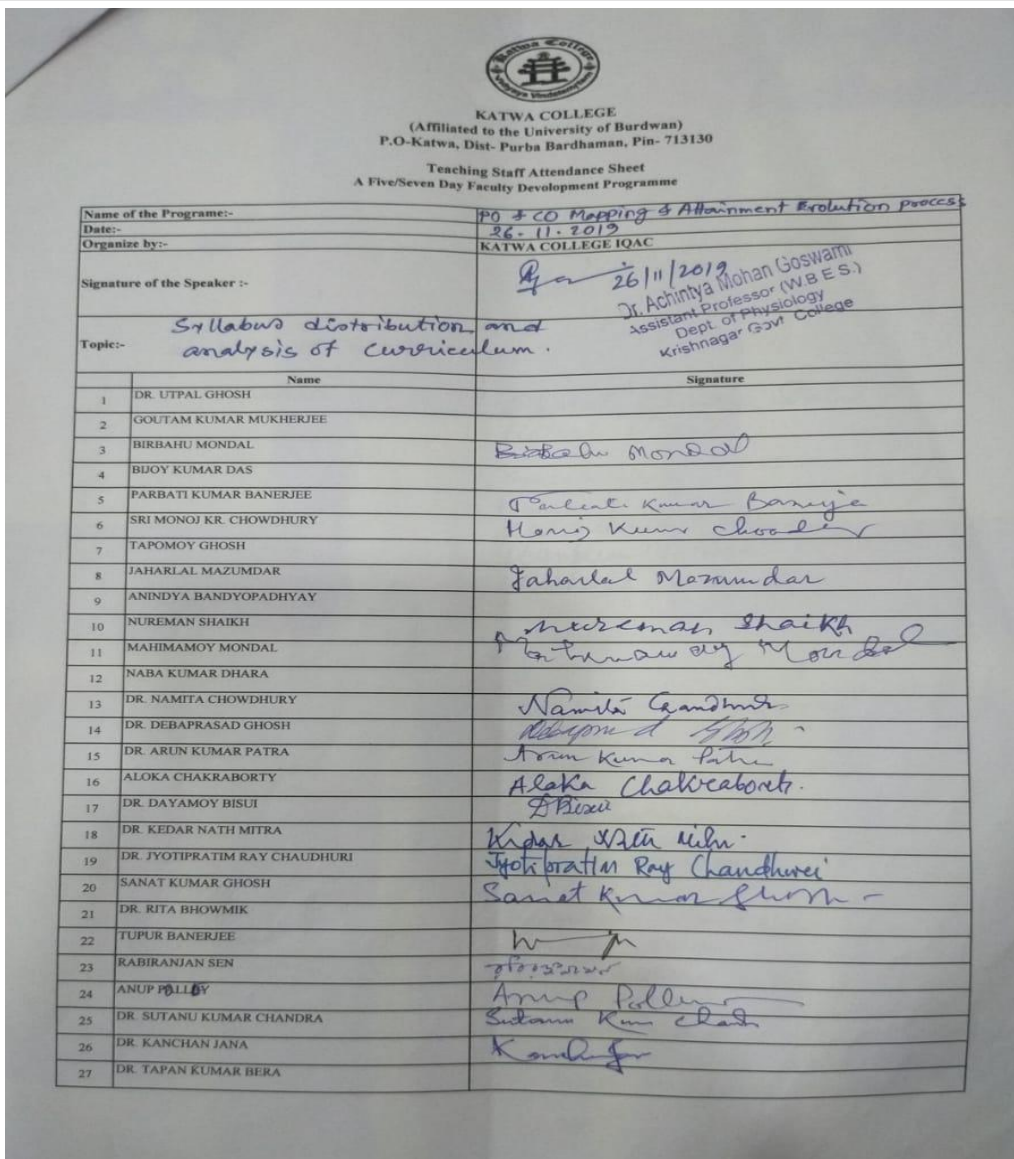 Katwa College
KATWA COLLEGE
(Affiliated to the University of Burdwan)
P.O-Katwa, Dist- Purba Bardhaman, Pin- 713130
Teaching Staff Attendance Sheet
A Five/Seven Day Faculty Devolopment Programme
Name of the Programe:- PO & CO Mapping & Attainment Evolution process
Date:- 26-11-2019
Organize by:- KATWA COLLEGE IQAC
Signature of the Speaker :- 26/11/2019
Dr. Achintya Mohan Goswami
Assistant Professor (W.B.E.S.)
Dept. of Physiology
Krishnagar Govt College
Topic:- Syllabus distribution and
analysis of curriculum.
Name Signature
1 DR. UTPAL GHOSH
2 GOUTAM KUMAR MUKHERJEE
3 BIRBAHU MONDAL Birbahu Mondal
4 BIJOY KUMAR DAS
5 PARBATI KUMAR BANERJEE Parbati Kumar Banerjee
6 SRI MONOJ KR. CHOWDHURY Monoj Kumar
7 TAPOMOY GHOSH
8 JAHARLAL MAZUMDAR Jaharlal Mazumdar
9 ANINDYA BANDYOPADHYAY
10 NUREMAN SHAIKH Nureman Shaikh
11 MAHIMAMOY MONDAL Mondal
12 NABA KUMAR DHARA
13 DR. NAMITA CHOWDHURY Namita
14 DR. DEBAPRASAD GHOSH
15 DR. ARUN KUMAR PATRA Arun Kumar Patra
16 ALOKA CHAKRABORTY Aloka Chakraborty.
17 DR. DAYAMOY BISUI DBisui
18 DR. KEDAR NATH MITRA Kedar Nath
19 DR. JYOTIPRATIM RAY CHAUDHURI Jyotipratim Ray Chaudhuri
20 SANAT KUMAR GHOSH Sanat Kumar Ghosh
21 DR. RITA BHOWMIK
22 TUPUR BANERJEE
23 RABIRANJAN SEN
24 ANUP POLLEY Anup Polley
25 DR. SUTANU KUMAR CHANDRA Sutanu Kumar Chandra
26 DR. KANCHAN JANA
27 DR. TAPAN KUMAR BERA